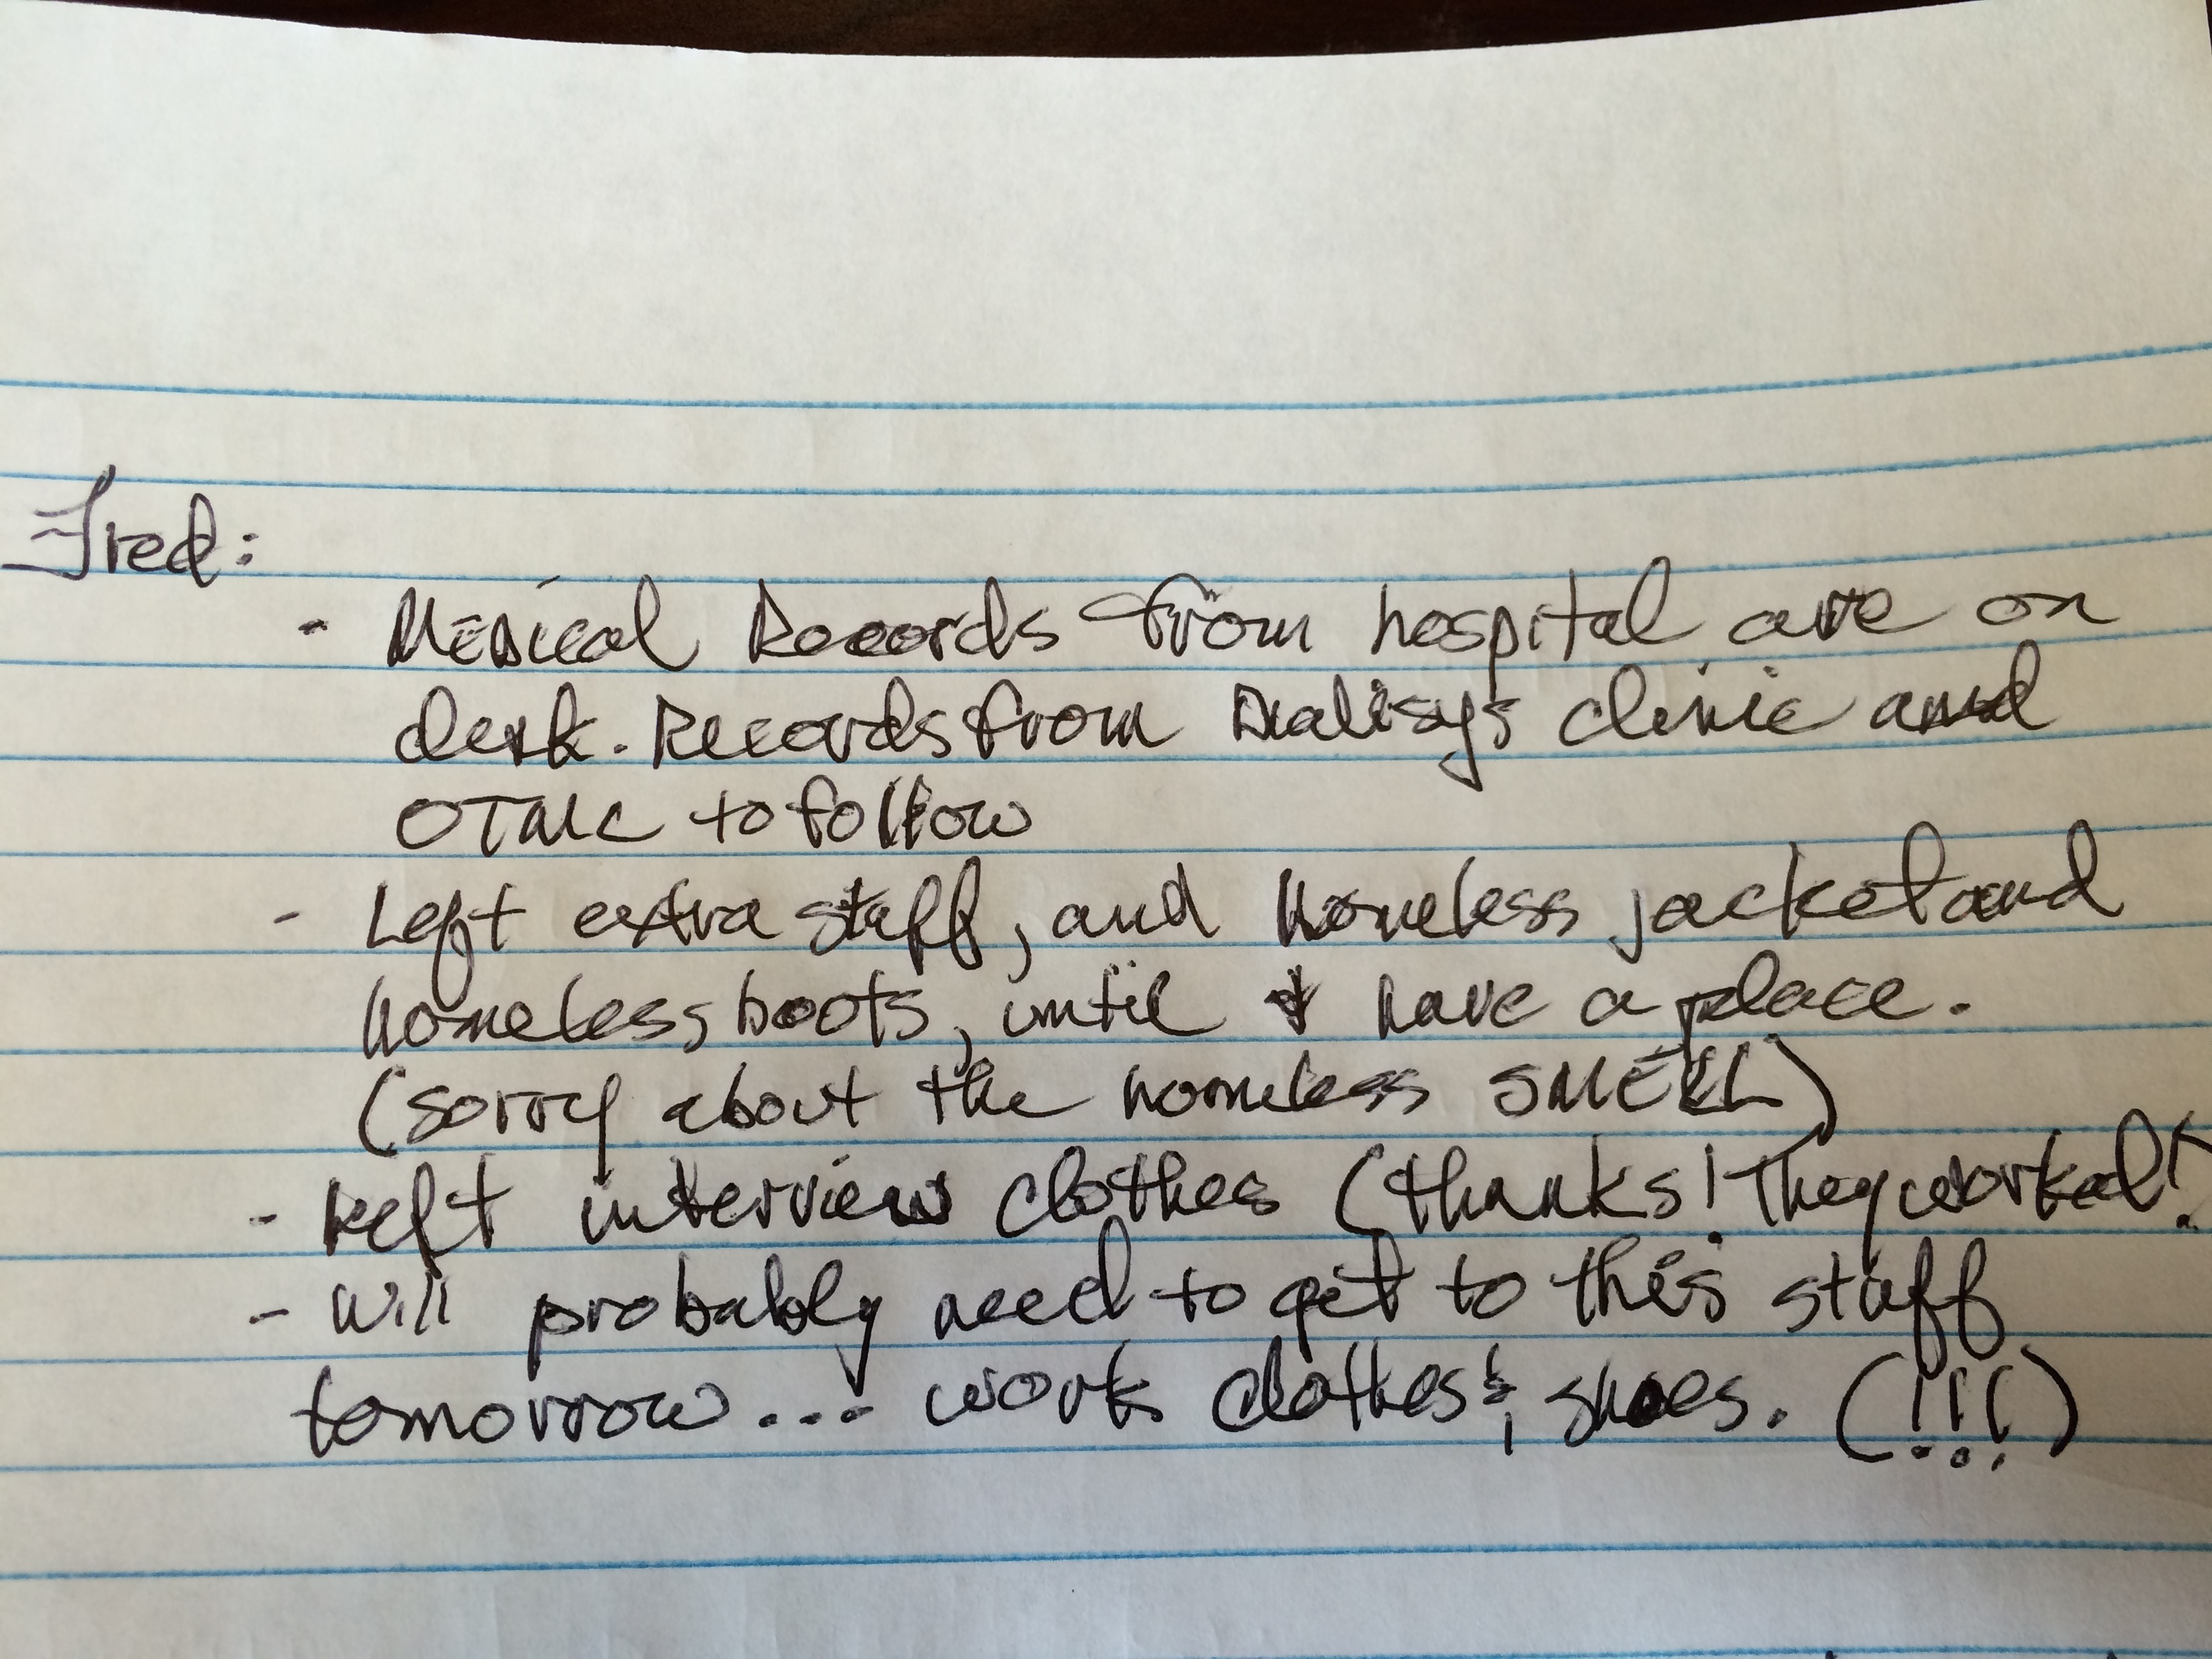 Fred:
- Medical Records from hospital are on
desk. Records from Dialisys clinic and
to follow
- Left extra stuff, and homeless jacket and
homeless boots, until I have a place.
(sorry about the homeless SMELL)
- Left interview clothes (thanks! They worked!)
- Will probably need to get to this stuff
tomorrow... work clothes & shoes. (!!!)